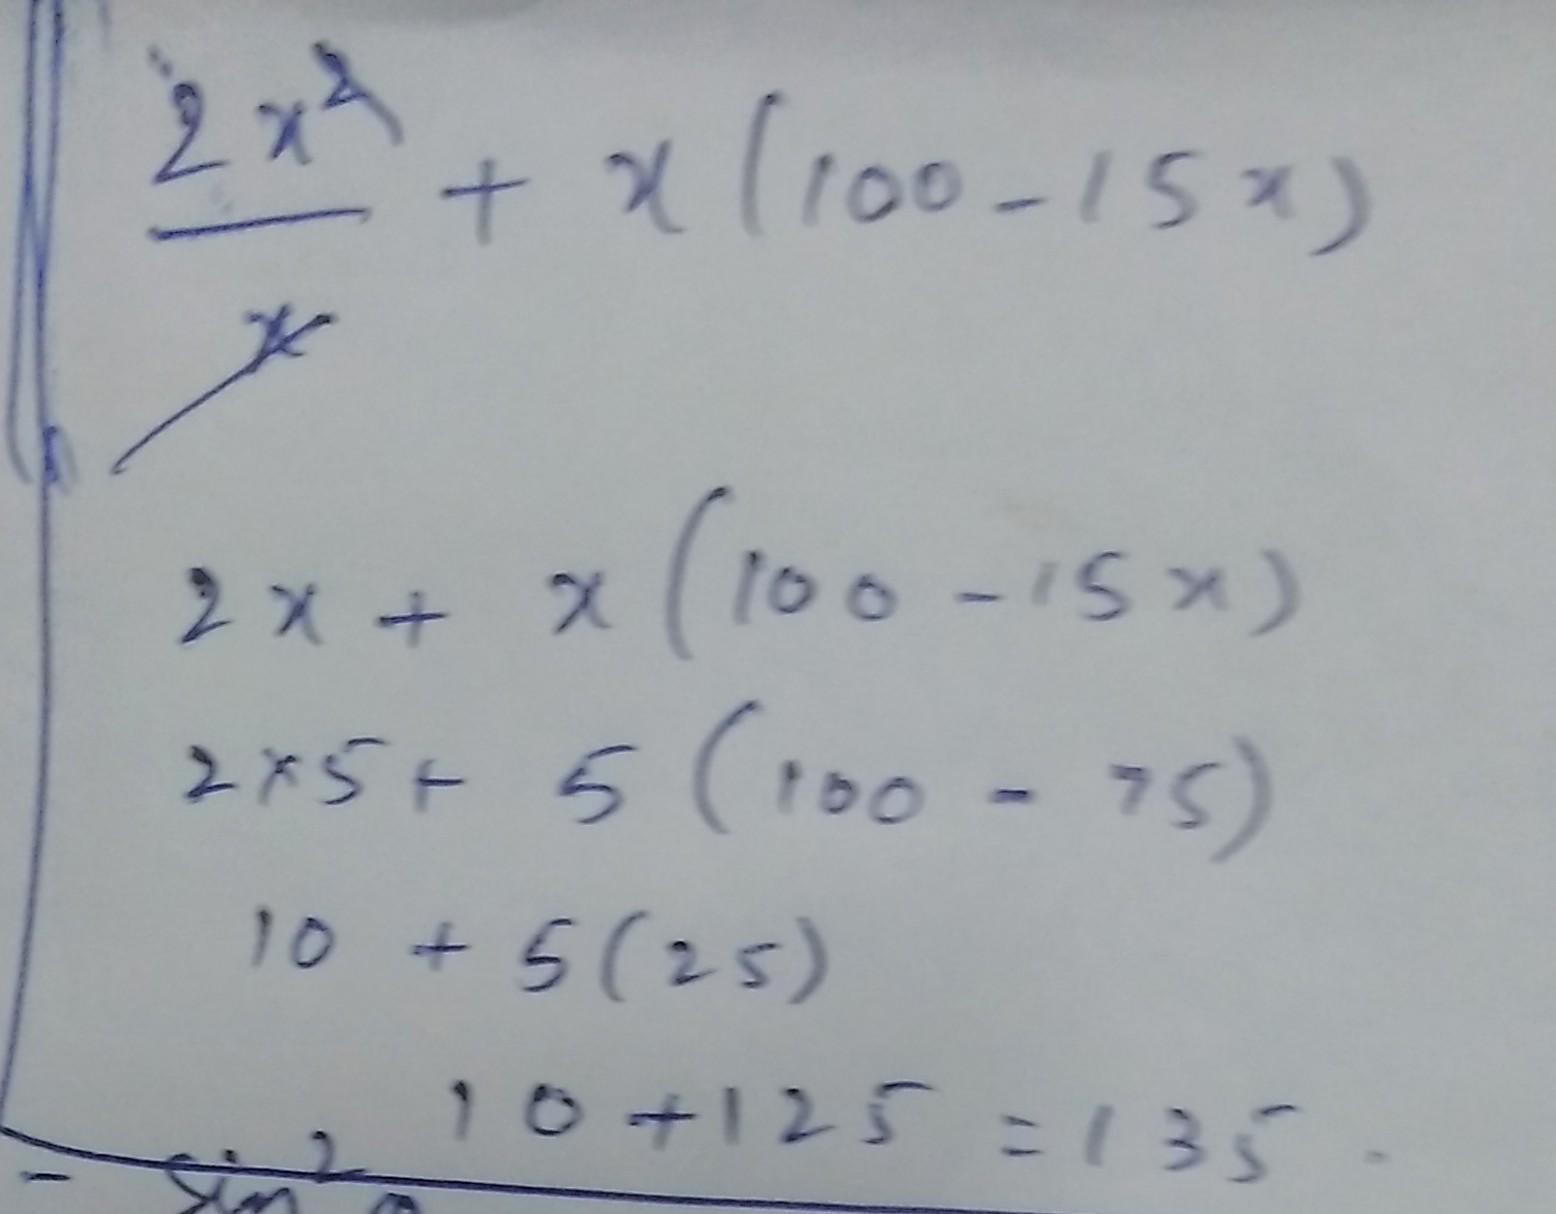 2x²
――― + x(100-15x)
x
2x + x(100-15x)
2×5+ 5(100 - 75)
10 + 5(25)
10+125 =135.
- sin²